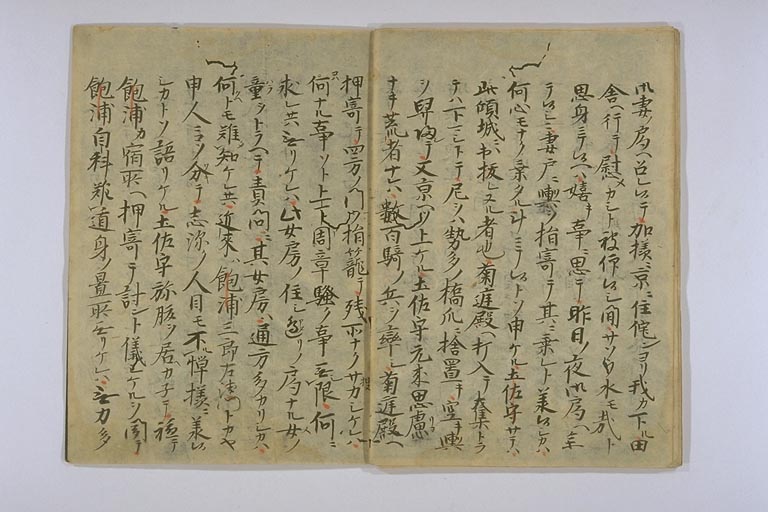 小妻ノ局ヘ召レテ加様ニ京ニ住侘ンヨリ我カ下ル田
舎ヘ行テ慰メカシト被仰シ間サソウ水モ哉ト
思身ニテレハ嬉キ事ニ思テ昨日ノ夜小局ヘ
テレシニ妻戸ニ輿ヲ指寄テ其ニ乗レト
何心モナク乗タル計ニテレトソ申ケル土佐守サテハ
此傾城ニ出抜レヌル者也菊庭殿ヘ打入テ
テハト尼ヲハ勢多ノ橋爪ニ捨置キ空キ輿
ヲ舁テ又京ヘソ上ケル土佐守元来思慮
ナキ荒者ナレハ数百騎ノ兵ヲ率シ菊庭殿ヘ
押寄テ四方ノ門ヲ指篭テ残所ナクサカシケレハ
何ナル事ソト上下周章騒ク事無限何ニ
求レ共ナカリケレハ此女房ノ住シ辺リノ局ナル女ノ
童ヲトラヘテ責問ニ其女房ハ通方多カリシカハ
何トモ難知ケレ共近来ハ飽浦三郎左衛門トカヤ
申人ニコソ分テ志深ク人目モ不憚様ニ
シカトソ語リケル土佐守弥腹ヲ居カネテ
飽浦カ宿所ヘ押寄テ討ント儀シケルヲ聞テ
飽浦自科難遁身ノ置所ナカリケレハ